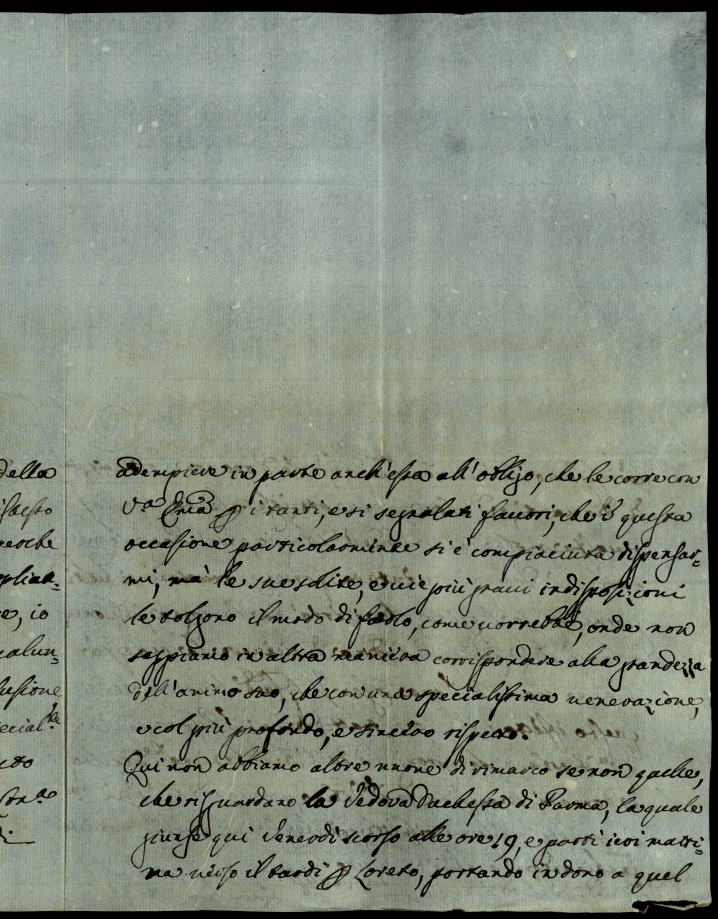 della
adempiere in parte anch'essa all'obligo, che le corre con
V.ª Em.ª p i tanti, e sì segnalati favori, che in questa
occasione particolarmente si è compiaciuta dispensar-
mi, mà le sue solite, e vie più gravi indisposizioni
le tolgono il modo di farlo, come vorrebbe, onde non
sappiamo in altra maniera corrispondere alla grandezza
dell'animo suo, che con una specialissima venerazione,
e col più profondo, e sincero rispetto.
Qui non abbiamo altre nuove di rimarco se non quelle,
che risguardano la Vedova Duchessa di Parma, la quale
giunse qui Venerdì scorso alle ore 19, e partì ieri matti-
na verso il tardi p Loreto, portando in dono a quel
e, io
alun-
lusione
ecial.te